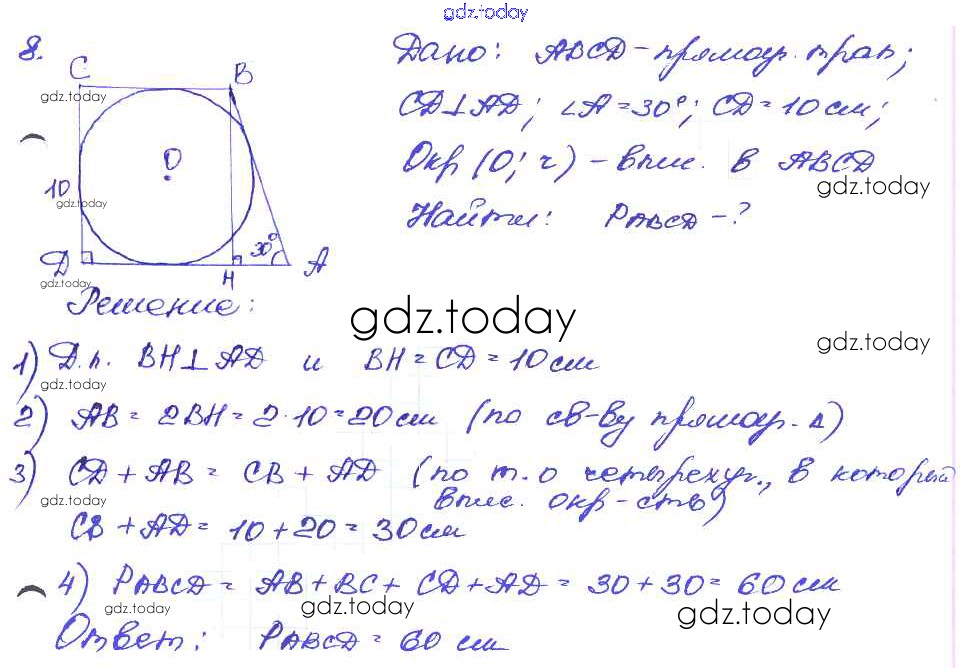 gdz.today
8.
C
B
gdz.today
O
10
gdz.today
30°
D
A
H
gdz.today
Дано: ABCD – прямоуг. трап;
CD⊥AD; ∠A = 30°; CD = 10 см;
Окр (O; r) – впис. в ABCD
gdz.today
Найти: PABCD – ?
Решение:
gdz.today
gdz.today
1) Д.п. BH⊥AD и BH = CD = 10 см
gdz.today
2) AB = 2BH = 2·10 = 20 см (по св-ву прямоуг. Δ)
3) CD + AB = CB + AD (по т. о четырехуг., в который
впис. окр-сть)
gdz.today
CB + AD = 10 + 20 = 30 см
4) PABCD = AB + BC + CD + AD = 30 + 30 = 60 см
gdz.today
gdz.today
gdz.today
Ответ: PABCD = 60 см